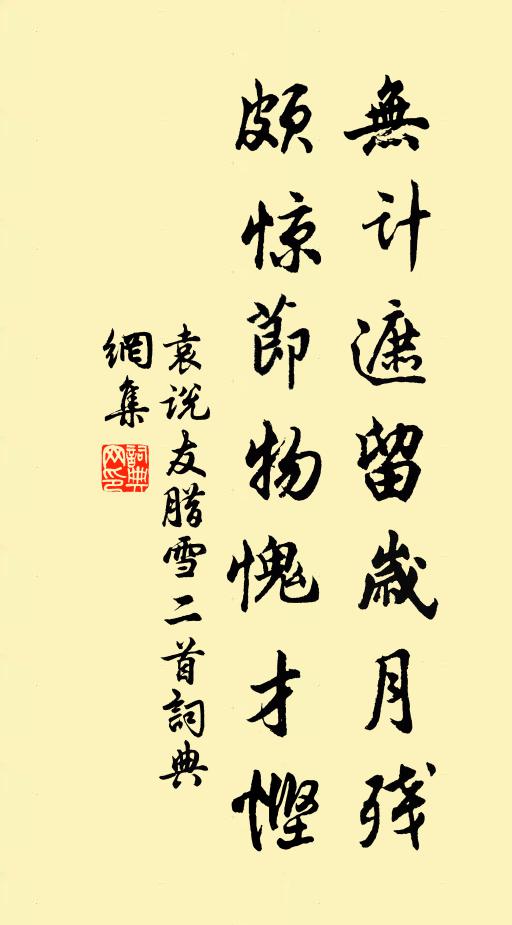 無计遮留歲月残
頗惊節物愧才慳
袁说友腊雪二首詞典
網集
詞典
网印